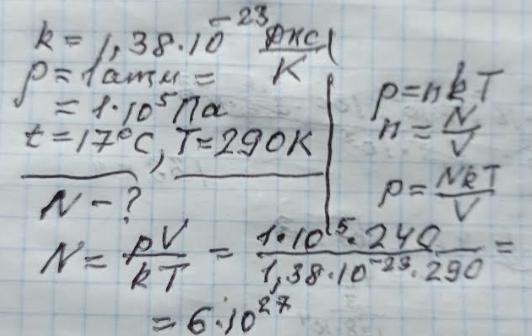 k = 1,38·10⁻²³ Дж/К
p = 1 атм =
= 1·10⁵ Па
t = 17°C, T = 290K
N - ?
p = nkT
n = N/V
p = NkT/V
N = pV/kT = 1·10⁵·240/1,38·10⁻²³·290 =
= 6·10²⁷